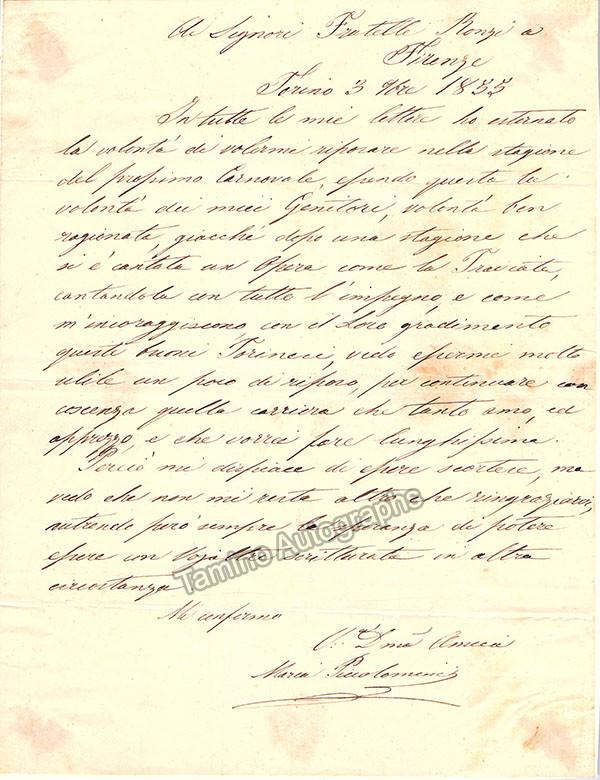 Ai Signori Fratelli Ronzi a
Firenze
Torino 3 9bre 1855
In tutte le mie lettere ho esternato
la volontà di volermi riposare nella stagione
del prossimo Carnovale, essendo questa la
volontà dei miei Genitori, volontà ben
ragionata, giacchè dopo una stagione che
si è cantata un Opera come la Traviata,
cantandola con tutto l'impegno, e come
m'incoraggiscono, con il Loro gradimento
questi buoni Torinesi, vedo essermi molto
utile un poco di riposo, per continuare con
coscenza quella carriera che tanto amo, ed
apprezzo, e che vorrei fare lunghissima.
Perciò mi dispiace di essere scortese, ma
vedo che non mi resta altro che ringraziarvi,
nutrendo però sempre la speranza di potere
essere con Voi scritturata in altra
circostanza
Mi confermo
V.a Dma Amica
Maria Piccolomini
Tamino Autographs